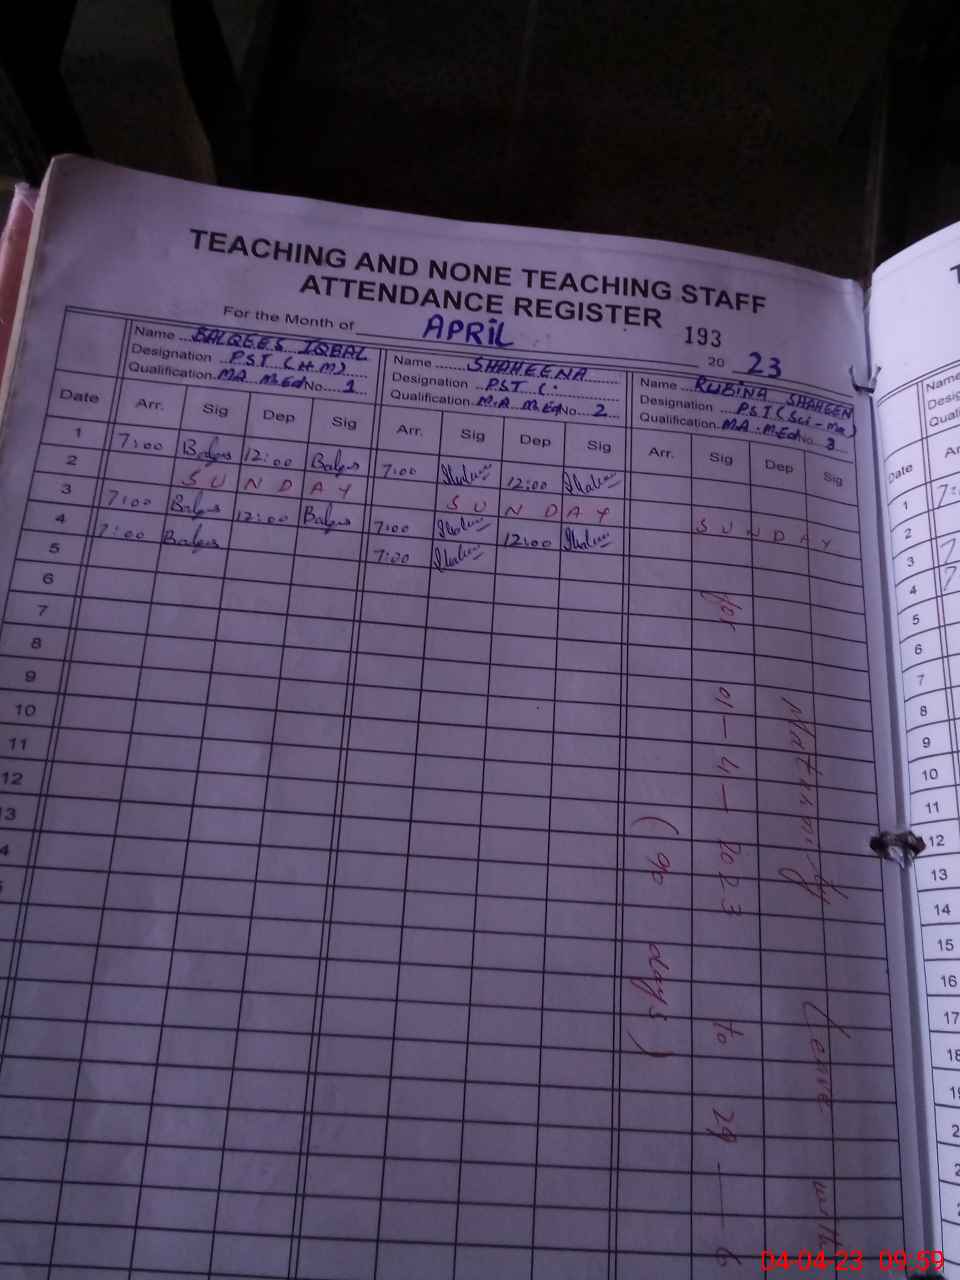 TEACHING AND NONE TEACHING STAFF
ATTENDANCE REGISTER
193
For the Month of APRIL 20 23
Name BALQEES IQBAL Name SHAHEENA Name RUBINA SHAHEEN
Designation PST (H.M) Designation PST (: Designation PST (Sci-ma)
Qualification MA M.Ed No. 1 Qualification M.A M.Ed No. 2 Qualification MA. M.Ed No. 3
Date Arr. Sig Dep Sig Arr. Sig Dep Sig Arr. Sig Dep Sig
1 7:00 Balqes 12:00 Balqes 7:00 Shaheen 12:00 Shaheen
2 SUNDAY SUNDAY SUNDAY
3 7:00 Balqes 12:00 Balqes 7:00 Shaheen 12:00 Shaheen
4 7:00 Balqes 7:00 Shaheen
5
6
7
8
9
10
11
12
13
4
Maternity Leave with
for 01-4-2023 to 29-6
(90 days)
Name
Date
1 7:
2
3 7
4 7
5
6
7
8
9
10
11
12
13
14
15
16
17
18
04-04-23 09:59